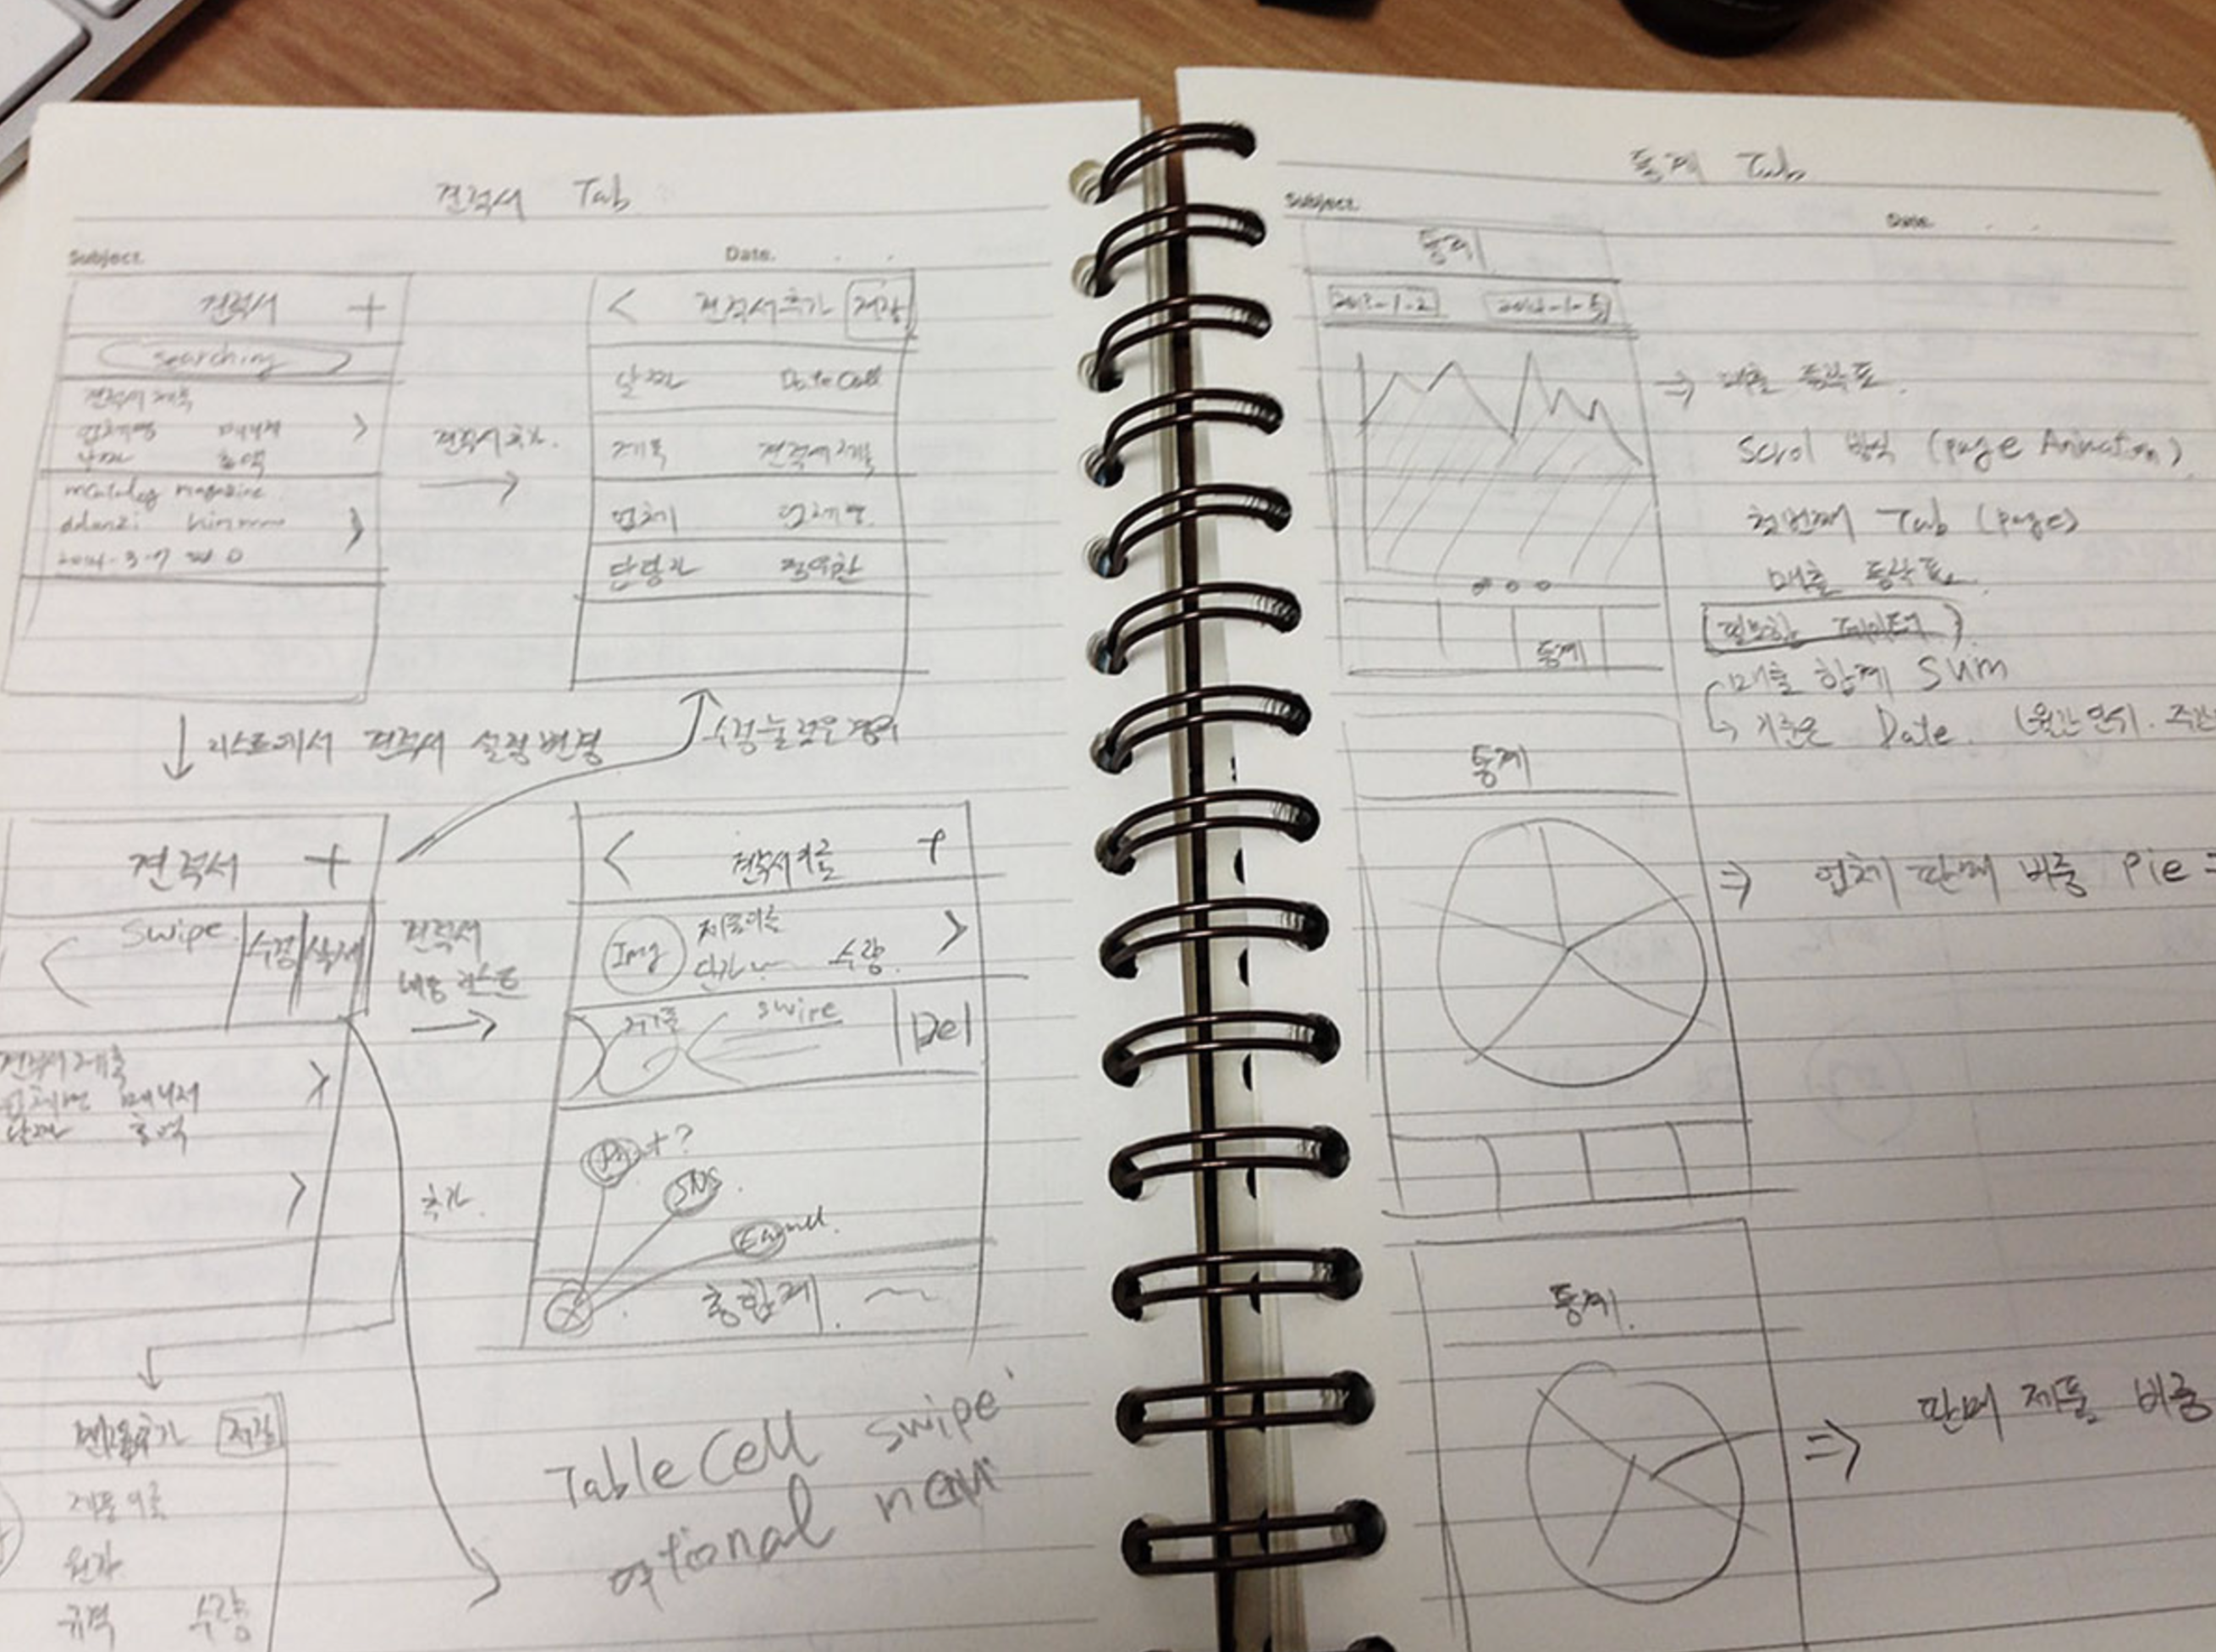 견적서 Tab
Subject.
Date. . .
견적서 +
searching
견적서 제목
업체명 매니저
날짜 총액
magazine
견적서 추가.
< 견적서 추가 저장
날짜 Date Cell
제목 견적서 제목
업체 업체명.
담당자
리스트에서 견적서 설정 변경
수정 눌렀을 경우
견적서 +
swipe
수정 삭제
견적서 제목
업체명 매니저
날짜 총액
견적서
내용 리스트
< 견적서 이름 +
Img
제품이름
단가 수량.
제품
swipe
Del
Print?
SNS.
Email.
총합계.
추가.
추가 저장
제품이름
원가
규격 수량
TableCell swipe
optional menu
통계 Tab
Subject.
Date. . .
통계
매출 등락표.
Scrol 방식 (page Animation)
첫번째 Tab (page)
매출 등락표.
필요한 데이터
매출 합계 sum
기준은 Date. (월간 단위.
통계
통계
업체 판매 비중 pie
통계.
판매 제품 비중